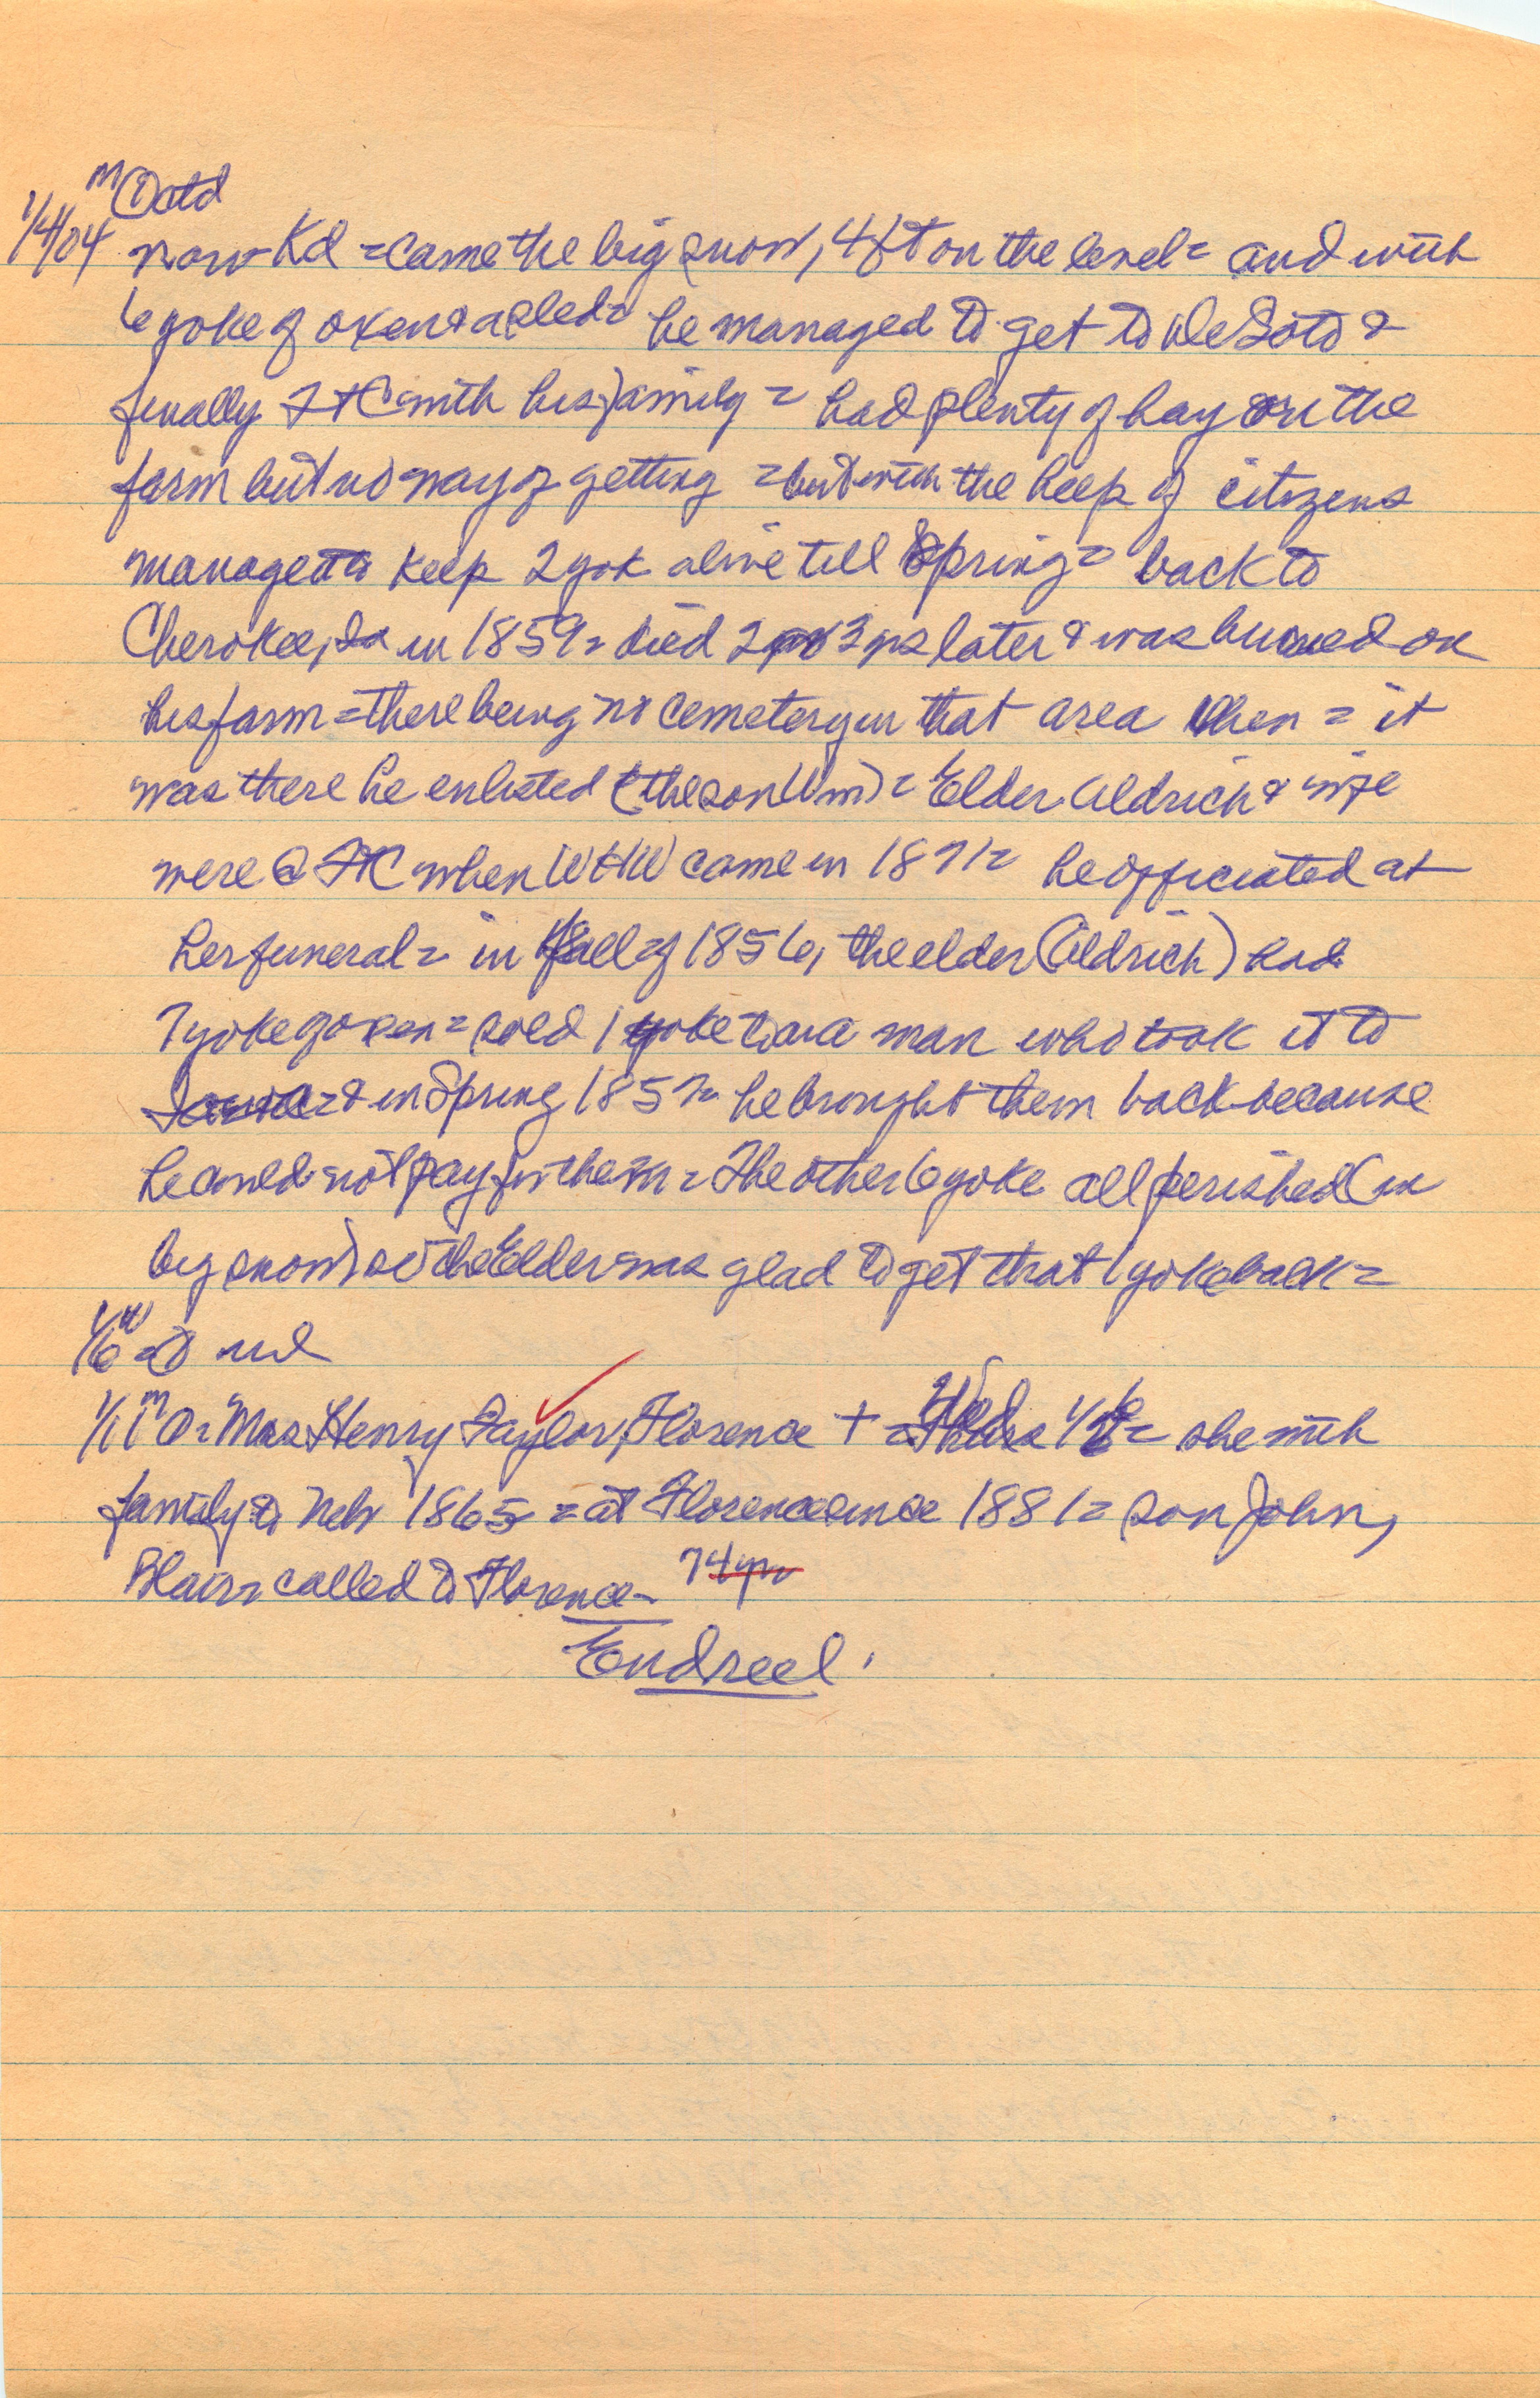 M ① ctd
1/4/04 now Kd = came the big snow, 4 ft on the level = and with
6 yoke of oxen & a sled = he managed to get to DeSoto &
finally FtC with his family = had plenty of hay on the
farm but no way of getting = but with the help of citizens
managed to keep 2 yok alive till Spring = back to
Cherokee, Ia in 1859 = died 2 or 3 yrs later & was buried on
his farm = there being no cemetery in that area then = it
was there he enlisted (the son Wm) = Elder Aldrich & wife
were @ FtC when WHW came in 1871 = he officiated at
her funeral = in fall of 1856, the elder (Aldrich) had
7 yoke of oxen = sold 1 yoke to a man who took it to
Iowa = & in Spring 1857 = he brought them back because
he could not pay for them = The other 6 yoke all perished (in
big snow) so the Elder was glad to get that 1 yoke back =
1/6 W = ① nd
1/11 M ① = Mrs Henry Taylor, Florence + = Wed 1/6 = she with
family to Neb 1865 = at Florence since 1881 = son John,
Blair = called to Florence - 74 yrs
End reel.